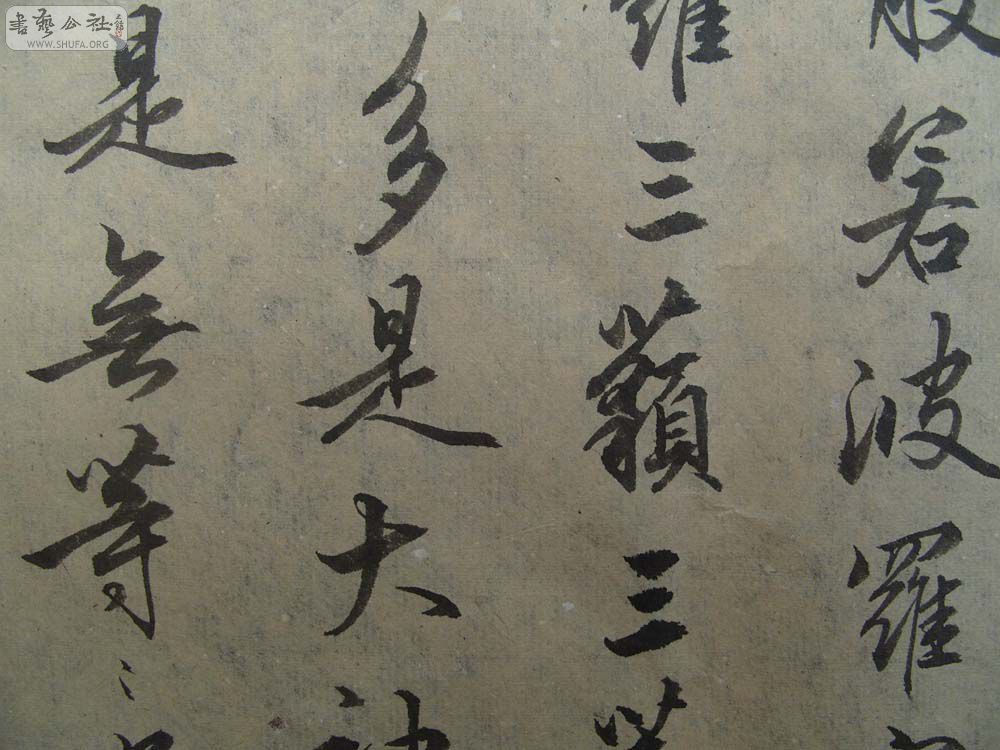 書藝公社
WWW.SHUFA.ORG
般若波羅
羅三藐三菩
多是大神
是無等〻